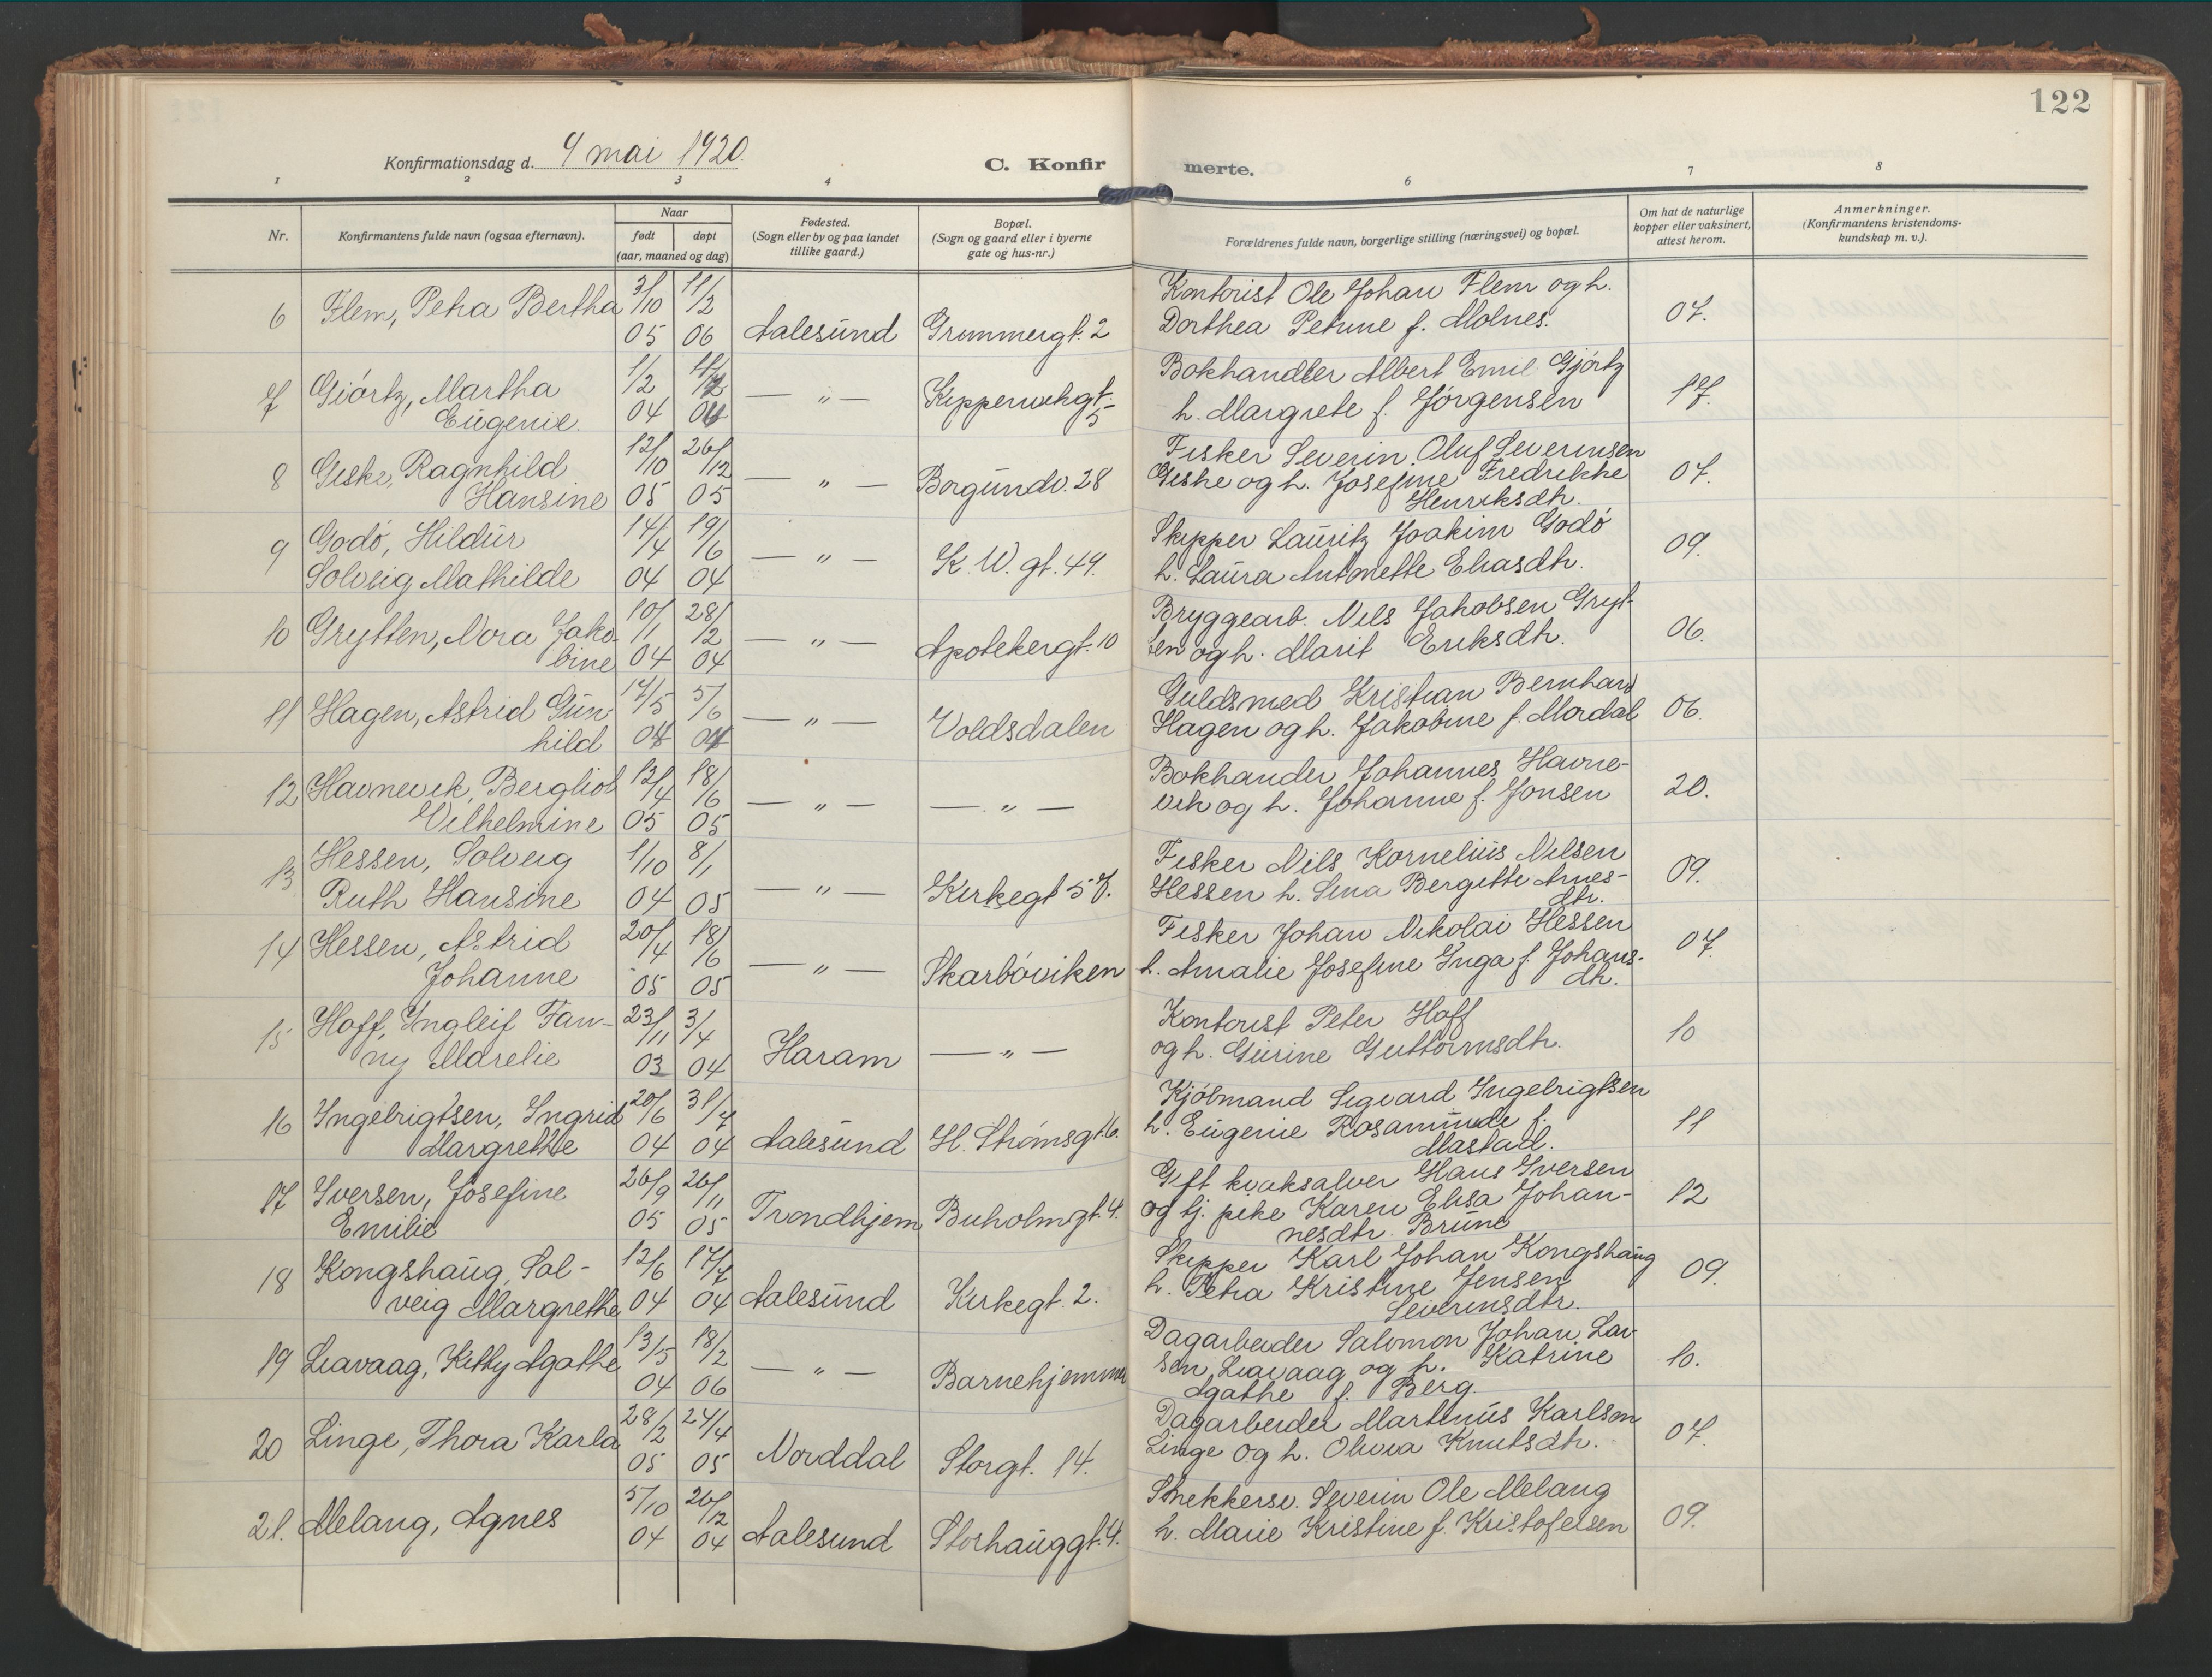 122
Konfirmationsdag d. 9 mai 1920.
C. Konfir merte.
1 2 3 4 6 7 8
Nr.
Konfirmantens fulde navn (ogsaa efternavn).
Naar
født døpt
(aar, maaned og dag)
Fødested.
(Sogn eller by og paa landet
tillike gaard.)
Bopæl.
(Sogn og gaard eller i byerne
gate og hus-nr.)
Forældrenes fulde navn, borgerlige stilling (næringsvei) og bopæl.
Om hat de naturlige
kopper eller vaksinert,
attest herom.
Anmerkninger.
(Konfirmantens kristendoms-
kundskap m. v.).
6 Flem, Petra Bertha 31/10 05 11/2 06 Aalesund Grimmergt. 2
Kontorist Ole Johan Flem og h.
Dorthea Petrine f. Molnes. 07.
7 Gjörtz, Martha
Eugenie. 1/2 04 — " — Kipperviksgt. 5
Bokhandler Albert Emil Gjörtz
h. Margrete f. Jørgensen 17.
8 Giske, Ragnhild
Hansine 12/10 05 26/12 05 — " — Borgundv. 28
Fisker Severin Oluf Severinsen
Giske og h. Josefine Fredrikke
Henriksdtr. 07.
9 Godö, Hildur
Solveig Mathilde 14/4 04 19/6 04 — " — K. W. gt. 49.
Skipper Lauritz Joakim Godö
h. Laura Antonette Eliasdtr. 09.
10 Grytten, Nora Jako-
bine 10/1 04 28/2 04 — " — Apotekergt. 10
Bryggearb. Nils Jakobsen Gryt-
ten og h. Marit Eriksdtr. 06.
11 Hagen, Astrid Gun-
hild 17/5 04 5/6 04 — " — Voldsdalen
Guldsmed Kristian Bernhard
Hagen og h. Jakobine f. Mordal 06.
12 Havnevik, Bergliot
Vilhelmine 12/4 05 18/6 05 — " — — " —
Bokhander Johannes Havne-
vik og h. Johanne f. Jonsen 20.
13 Hessen, Solveig
Ruth Hansine 1/10 04 8/1 05 — " — Kirkegt 57.
Fisker Nils Kornelius Nilsen
Hessen h. Sina Bergitte Arnes-
dtr. 09.
14 Hessen, Astrid
Johanne 20/4 05 18/6 05 — " — Skarböviken
Fisker Johan Nikolai Hessen
h. Amalie Josefine Inga f. Johans-
dtr. 07.
15 Hoff, Ingleif Fan-
ny Marelie 23/11 03 3/4 04 Haram — " —
Kontorist Peter Hoff
og h. Gurine Guttormsdtr. 10
16 Ingebrigtsen, Ingrid
Margrethe 20/6 04 31/7 04 Aalesund H. Strömsgt 6.
Kjöbmand Sigvard Ingebrigtsen
h. Eugenie Rosamunde f.
Mastad. 11
17 Iversen, Josefine
Emilie 26/9 05 26/11 05 Trondhjem Buholmgt. 4.
Gift kvaksalver Hans Iversen
og tj. pike Karen Elisa Johan-
nesdtr. Brune 12
18 Kongshaug, Sol-
veig Margrethe 12/6 04 17/7 04 Aalesund Kirkegt. 2.
Skipper Karl Johan Kongshaug
h. Petra Kristine Jensen
Severinsdtr. 09.
19 Liavaag, Kitty Agathe 13/5 04 18/2 06 — " — Barnehjemmet
Dagarbeider Salomon Johan Lar-
sen Liavaag og h. Katrine
Agathe f. Berg. 10.
20 Linge, Thora Karla 28/2 05 24/4 05 Norddal Storgt. 14.
Dagarbeider Martinus Karlsen
Linge og h. Olivia Knutsdtr. 07.
21. Melang, Agnes 5/10 04 26/12 04 Aalesund Storhauggt. 4.
Snekkersv. Severin Ole Melang
h. Marie Kristine f. Kristofersen 09.